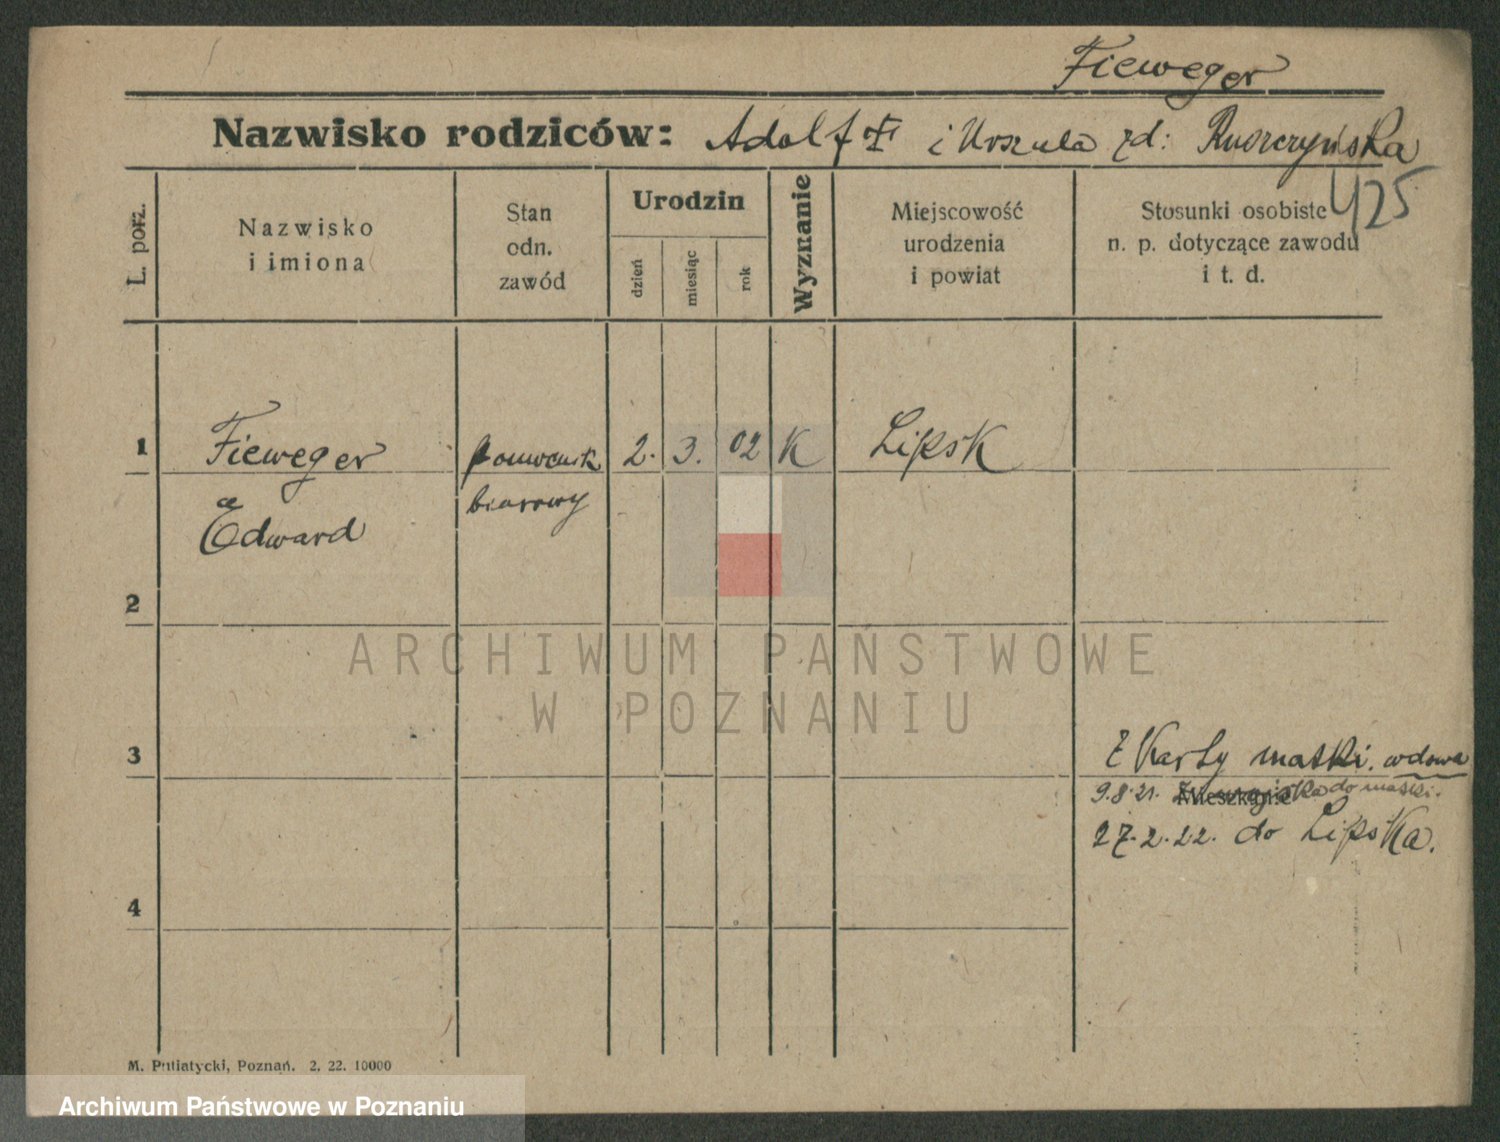 Fieweger
Nazwisko rodziców: Adolf i Urszula zd: Ruszczyńska
425
L. porz.
Nazwisko
i imiona
Stan
odn.
zawód
Urodzin
dzień
miesiąc
rok
Wyznanie
Miejscowość
urodzenia
i powiat
Stosunki osobiste
n. p. dotyczące zawodu
i t. d.
1
Fieweger
pomocnik
2. 3. 02 K
Lipsk
Edward
biurowy
2
ARCHIWUM PAŃSTWOWE
W POZNANIU
3
Z Karty matki. wdowa
9.8.21. Mieszkanie do matki.
27.2.22. do Lipska.
4
M. Putiatycki, Poznań. 2. 22. 10000
Archiwum Państwowe w Poznaniu